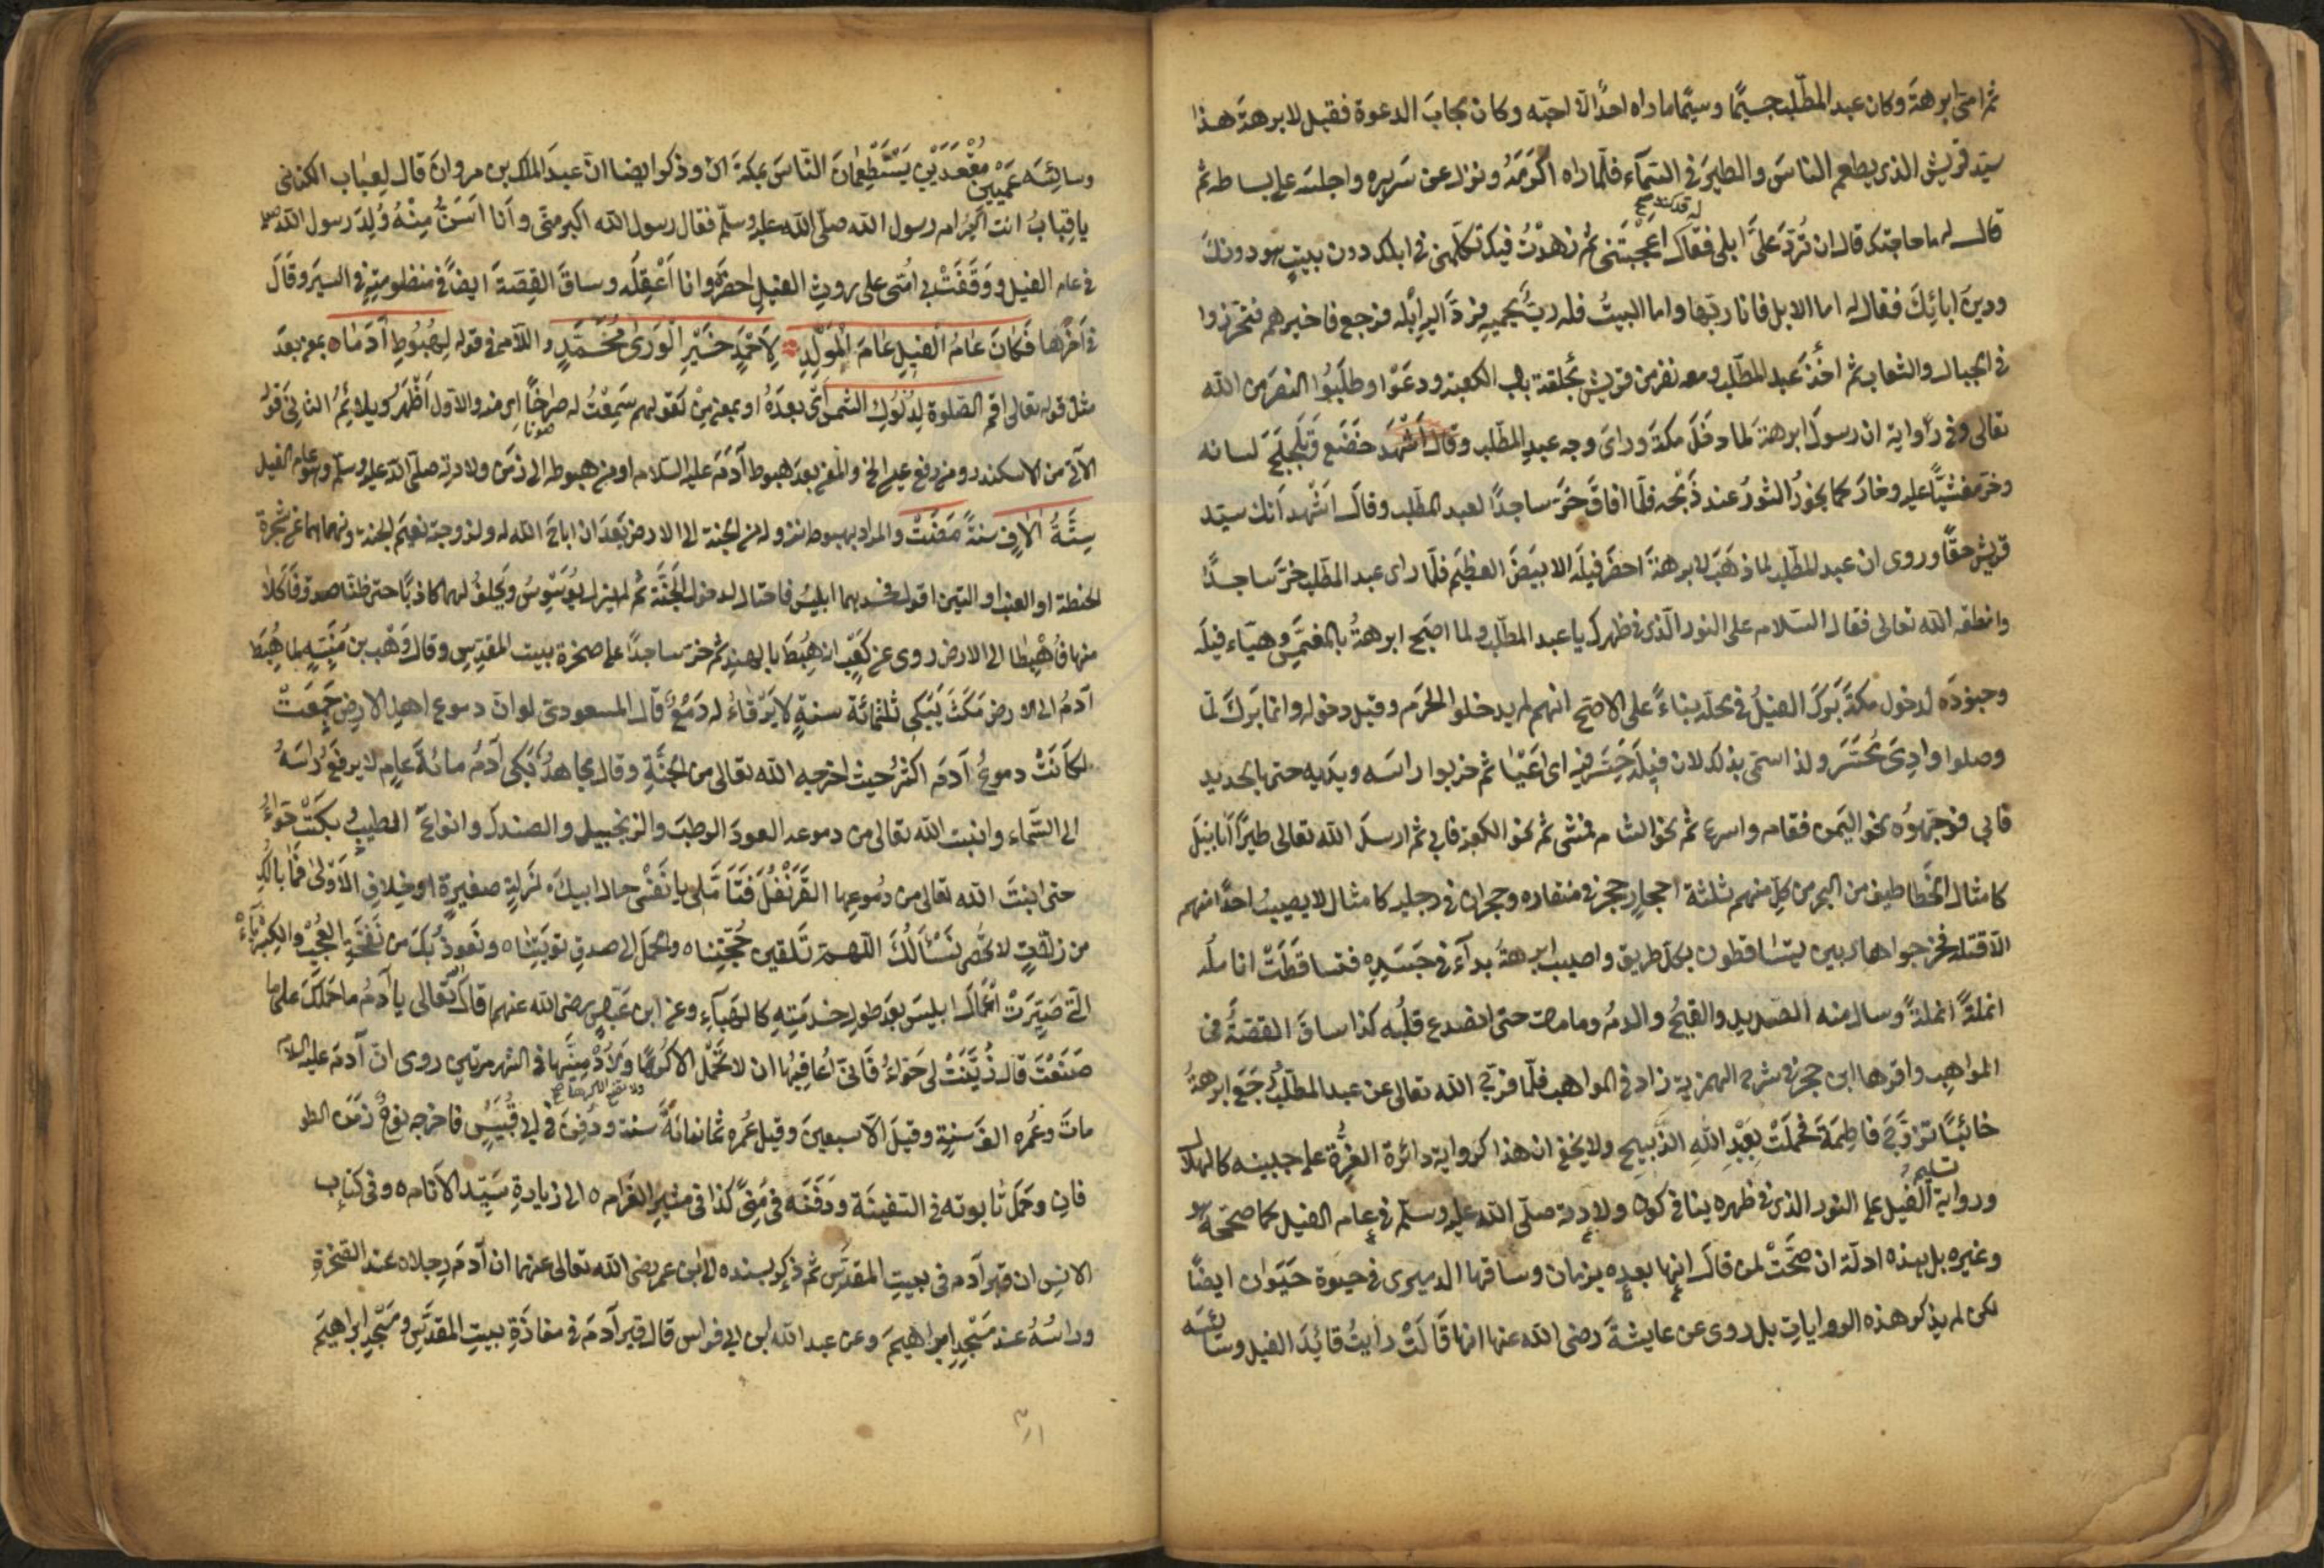 ثم اتى ابرهة وكان عبد المطلب جسيمًا وسيمًا ما راه احدًا الا احبه وكان مجاب الدعوة فقيل لابرهة هذا
سيد قريش الذى يطعم الناس والطير فى السمآء فلما راه اكرمه ونزل عن سريره واجلسه على بساطه ثم
قال له ما حاجتك قال ان تُرَدَّ علىَّ ابلى فقال له قد كنت اعجبتنى ثم زهدتُ فيك تكلمنى فى ابلك دون بيتٍ هو دينك
ودين ابائك فقال له اما الابل فانا ربها واما البيتُ فله ربٌّ يحميه فردَّ اليه ابله فرجع فاخبرهم فتحرزوا
فى الجبال والشعاب ثم اخذ عبد المطلب ومعه نفر من قريش بحلقة باب الكعبة ودعَوْا وطلبُوا النصر من الله
تعالى وفى رواية ان رسول ابرهة لما دخل مكة وراى وجه عبد المطلب خضع وتلجلج لسانه
وخر مغشيًّا عليه وخار كما يخورُ الثورُ عند ذَبْحه فلما افاق خرَّ ساجدًا لعبد المطلب وقال اَشْهد اَنك سيد
قريش حقًّا وروى ان عبد المطلب لما ذهب لابرهة احضر فيله الابيض العظيم فلما راى عبد المطلب خرَّ ساجدًا
وانطقه الله تعالى فقال السلام على النور الذى فى ظهرك يا عبد المطلب ولما اصبح ابرهةُ بالمغمَّس وهيّاء فيله
وجنوده لدخول مكة بَرَك الفيلُ فى محله بناءً على الاصح انهم لم يدخلوا الحرم وقيل دخله وانما برك لما
وصلوا وادِىَ مُحَسَّر ولذا سمى بذلك لان فيله حَسَر فيه اى اَعْيَا ثم ضربوا راسه ويديه حتى بالحديد
فابى فوجهوُه نحو اليمن فقام واسرع ثم نحو الشام فمشى ثم نحو الكعبة فابى ثم ارسل الله تعالى طيرًا ابابيل
كامثال الخطاطيف من البحر من كل منهم ثلثة احجار حجر فى منقاره وحجران فى رجليه كامثال لا يصيبُ احدًا منهم
الا قتله فخرجوا هاربين يتساقطون بكل طريق واصيب ابرهةُ بدآء فى جسَدِه فتساقطَتْ انامله
انملةً انملةً وسال منه الصديد والقيحُ والدمُ وما مات حتى انصدع قلبُه كذا ساق القصةَ فى
المواهب واقرها ابن حجر فى شرح الهمزية زاد فى المواهب فلما فرج الله تعالى عن عبد المطلب ورجع ابرهةُ
خائبًا تزوَّج فاطمةَ فحملَتْ بعبْدِ اللهِ الذبيح ولا يخفى ان هذا كرواية دائرة الغُرَّة على جبينه كالهلال
ورواية تسليم الفيل على النور الذى فى ظهره ينافى كون ولادته صلّى الله عليه وسلّم فى عام الفيل كما صححه هو
وغيره بل بهذه ادلة ان صحَّتْ لمن قال انها بعده بزمان وساقها الدميرى فى حيوة حَيَوان ايضًا
لكن لم يذكر هذه الروايات بل روى عن عايشة رضى الله عنها انها قَالَتْ رايتُ قائِدَ الفيل وسائسه
وسائِسَه عَمِيَيْن مُقْعَدَيْنِ يَسْتَطْعِمَانَ النّاسَ بمكة اﻫ وذكر ايضا ان عبد الملك بن مروان قال لقباب الكنانى
يا قباب انت اكبر ام رسول الله صلّى الله عليه وسلّم فقال رسول الله اكبر منى وانا اَسَنُّ مِنْهُ وُلِدَ رسول الله صلعم
فى عام الفيل ووَقَفَتْ بى اُمّى على روث الفيلِ اخضر وانا اَعْقِلُه وساق القِصّةَ ايضًا فى منظومته فى السيَر وقَالَ
فى آخرها فَكَانَ عَامُ الْفِيلِ عَامَ الْمَوْلِدِ لِاَحْمَدٍ خَيْرِ الْوَرٰى مُحَمَّدٍ واللام فى قوله لِهُبُوطِ آدَمَا بمعنى بعدَ
مثل قوله تعالى اقم الصلوة لِدُلُوكِ الشمس اى بعدَهُ او بمعنى مِنْ كقولهم سَمِعْتُ له صراخًا اى منه والاول اَظْهَرُ ويلائِمُ الثانى قولُ
الآتى من الاسكندر ومن رفع عيسى الخ والمعنى بعدَ هبوط آدمَ عليه السلام او من هبوطه الى زمن ولادته صلّى الله عليه وسلّم وهو عام الفيل
سِتَّةُ اٰلَافِ سَنةً مَضَتْ والمراد بهبوطه نزوله من الجنة الى الارض بَعْدَ ان اباح الله له ولزوجته نعيمَ الجنة ونهاهما عن شجرة
الحنطة او العنب او التين اقول فحسدهما ابليسُ فاحتال لدخول الجَنَّة ثم لم يزل يُوَسْوِسُ ويحلفُ لهما كاذبًا حتى ظنّا صدقه فَاَكَلا
منها فأُهْبِطا الى الارض روى عن كعْبٍ انه هَبَطَ بالهند ثم خرّ ساجدًا على صخرة بيت المقدس وقال وَهْب بن مُنَبِّهٍ لما هبطَ
آدمُ الى الارض مَكَثَ يَبْكى ثلثمائة سنةٍ لا يَرْقاءُ له دَمْعٌ قال المسعودى لو ان دموع اهل الارض جُمِعَتْ
لكَانَتْ دموعُ آدم اكثرُ حيث اخرجه الله تعالى من الجنَّةِ وقال مجاهدٌ بَكى آدمُ مائةَ عامٍ لا يرفعُ راسَهُ
الى السَّماء وانبت الله تعالى من دموعه العودَ الرطبَ والزنجبيل والصندل وانواعَ الطيب وبكَتْ حوّاءُ
حتى انبتَ الله تعالى من دُموعِها القَرَنْفُلَ فتأمَّلى يا نَفْسى حال ابيك لزلةٍ صغيرةٍ او خلافِ الاَوْلى فما بالُكِ
من زلّاتٍ لا تُحْصى نَسْألُكَ اللّهم تَلقين حُجّتنا والحمل الى صدق توبتنا ونَعوذ بكَ من نَفْخَةِ العُجْبِ والكِبْرِيَاء
التى صَيَّرَتْ اَعْمَالَ ابليس بعد طول خِدْمَتِهِ كالهَبَآءِ وعن ابن عباس رضى الله عنهما قال تعالى يا آدمُ ما حَمَلَكَ على ما
صَنَعْتَ قال زيَّنَتْ لى حَوّاءُ قال فانى اُعاقِبُها ان لا تحمل الا كُرْهًا ولا تضع الا كرها ولاُدْمِيَنَّها فى الشهر مرتين روى ان آدمَ عليه السلام
ماتَ وعُمره الفَ سَنةٍ وقيلَ الا سبعينَ وقيل عُمره ثمانمائةَ سنة ودُفِنَ فى ابى قُبَيْسٍ فاخرجه نوحٌ زمَن الطو
فان وحَمَل تابوته فى السفينَة ودَفَنَه فى مِنىً كذا فى مُثيرِ الغَرام الى زيادةِ سَيّد الاَنام وفى كتاب
الانس ان قبر آدم فى بيتِ المقدَّس ثم ذكر بسنده الى ابن عمر رضى الله تعالى عنهما ان آدمَ رِجلاه عند الصَّخرةِ
وراسُهُ عند مَسْجِدِ ابراهيمَ وعن عبد الله ابن ابى فراس قال قبر آدمَ فى مغارَةٍ بيتِ المقدَّسِ ومَسْجِدِ ابراهيمَ